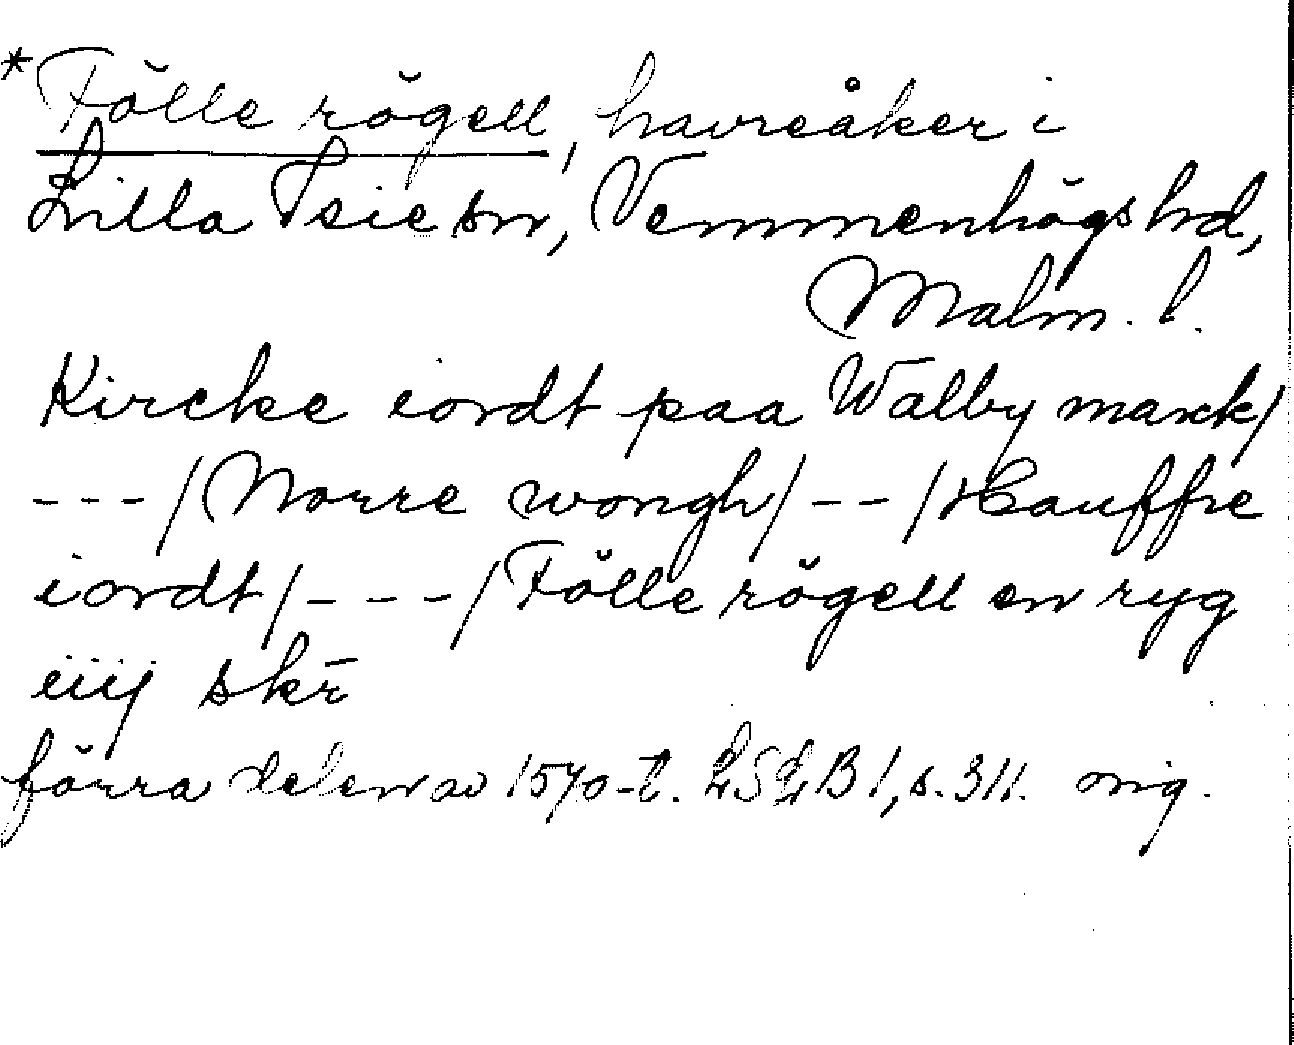 *Fölle rögell, havreåker i
Lilla Isie sn, Vemmenhögs hd,
Malm. l.
Kircke iordt paa Walby marck/
---/Norre wongh/--/Hauffre
iordt/---/Fölle rögell en ryg
iiij skr̄
förra delen av 1570-t. LSLB 1, s. 311. orig.